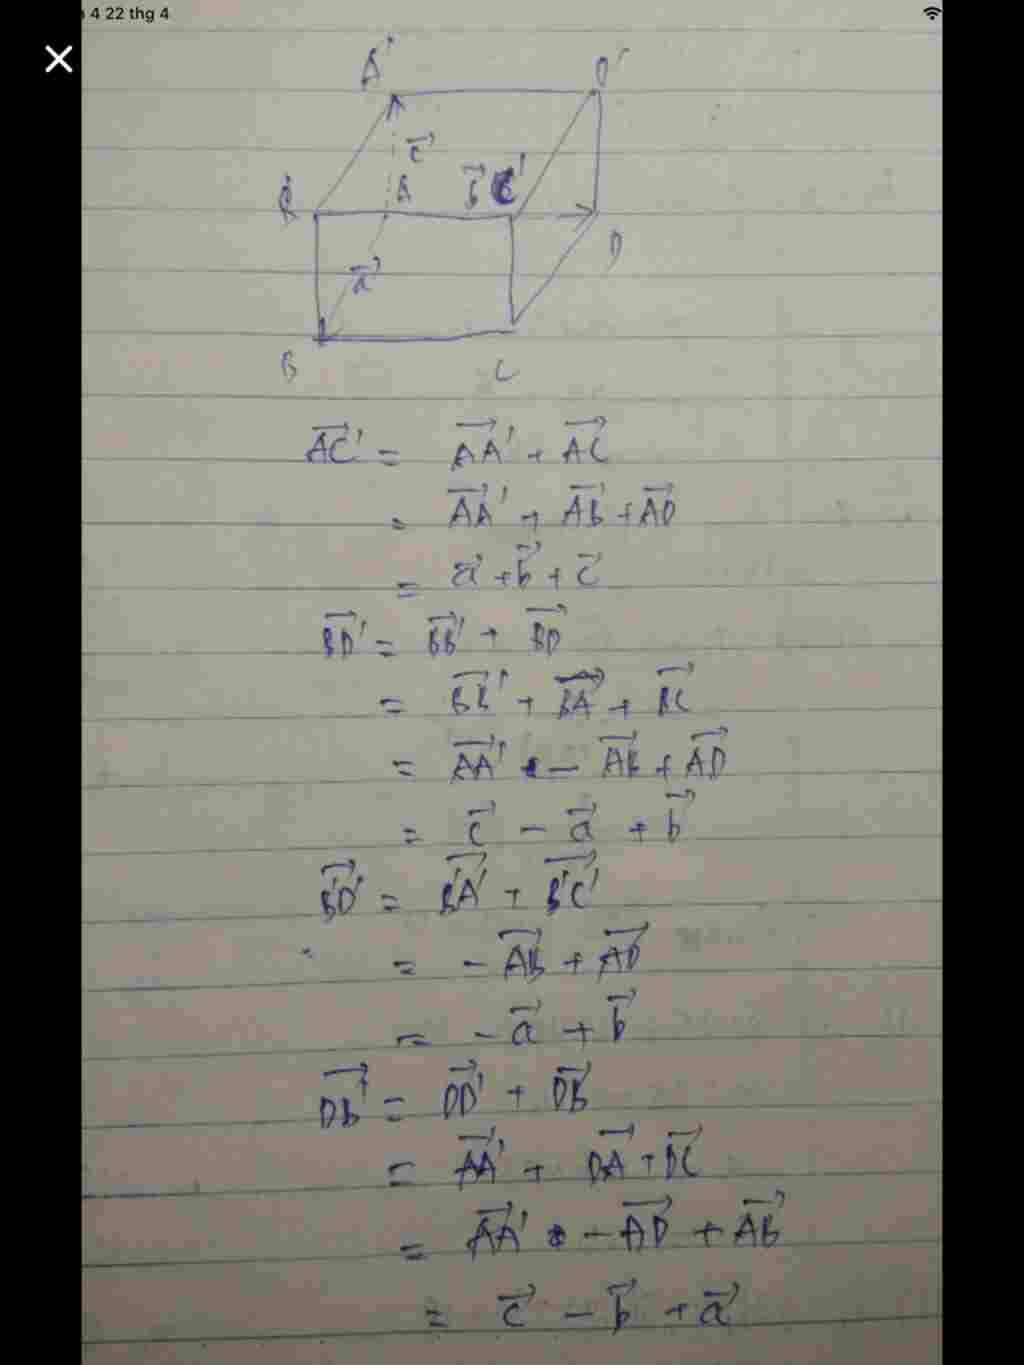 4 22 thg 4
A' D'
c⃗
B' A b⃗ C'
D
a⃗
B C
AC'⃗ = AA'⃗ + AC⃗
= AA'⃗ + AB⃗ + AD⃗
= a⃗ + b⃗ + c⃗
BD'⃗ = BB'⃗ + BD⃗
= BB'⃗ + BA⃗ + BC⃗
= AA'⃗ - AB⃗ + AD⃗
= c⃗ - a⃗ + b⃗
B'D'⃗ = B'A'⃗ + B'C'⃗
= - AB⃗ + AD⃗
= - a⃗ + b⃗
DB'⃗ = DD'⃗ + DB⃗
= AA'⃗ + DA⃗ + DC⃗
= AA'⃗ - AD⃗ + AB⃗
= c⃗ - b⃗ + a⃗